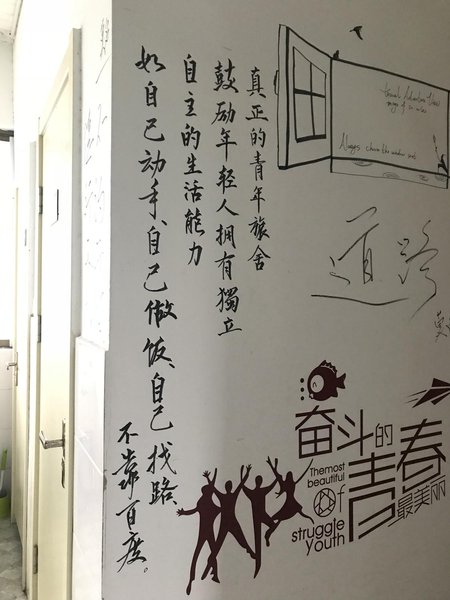 真正的青年旅舍
鼓励年轻人拥有獨立
自主的生活能力
如自己动手、自己做饭、自己找路
不靠百度。
Always choose the window seat
道路
奋斗的
青春
最美丽
Themost
beautiful
Of
struggle
youth